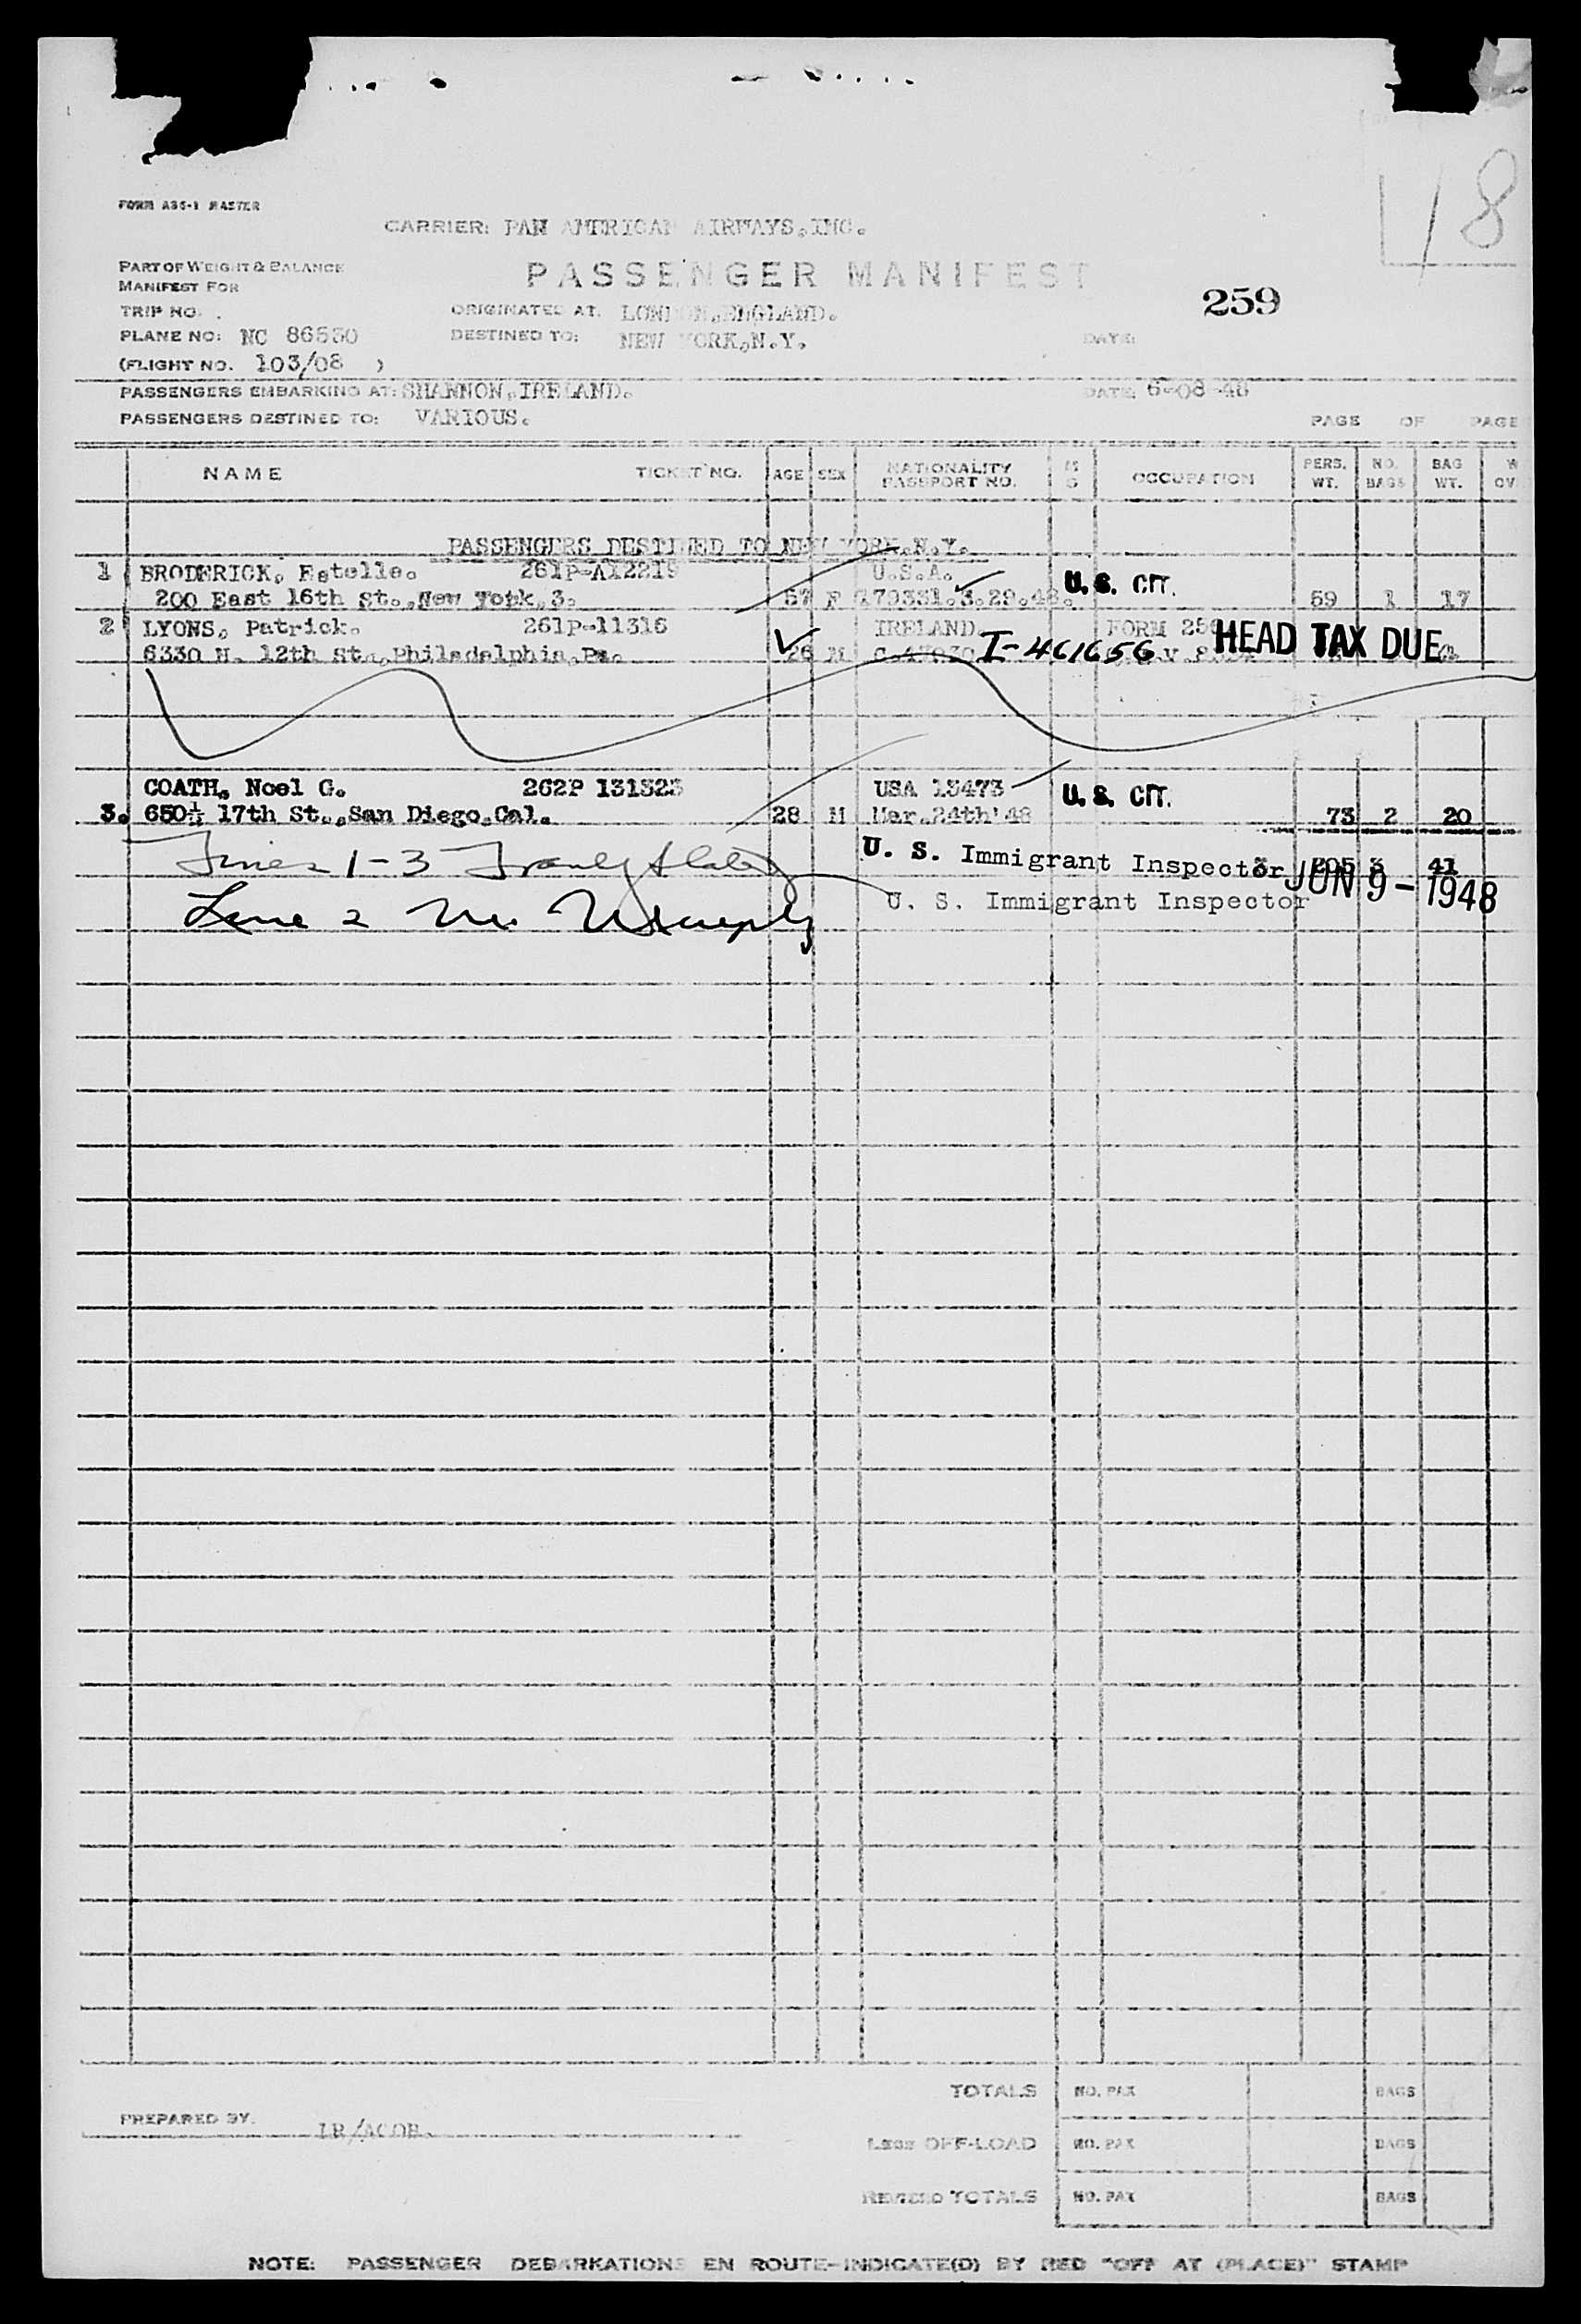 18
FORM A35-1 MASTER
CARRIER: PAN AMERICAN AIRWAYS, INC.
PART OF WEIGHT & BALANCE
MANIFEST FOR
PASSENGER MANIFEST
259
TRIP NO. ORIGINATED AT: LONDON, ENGLAND.
PLANE NO: NC 86530 DESTINED TO: NEW YORK, N.Y. DATE:
(FLIGHT NO. 103/08 )
PASSENGERS EMBARKING AT: SHANNON, IRELAND. DATE: 6-08-48
PASSENGERS DESTINED TO: VARIOUS. PAGE OF PAGE
NAME TICKET NO. AGE SEX NATIONALITY PASSPORT NO. OCCUPATION PERS. WT. NO. BAGS BAG WT.
PASSENGERS DESTINED TO NEW YORK, N.Y.
1 BRODERICK, Estelle. 261P-A12219 U.S.A. U. S. CIT.
200 East 16th St., New York, 3. 57 F 179331. 3.29.48. 59 1 17
2 LYONS, Patrick. 261P-11316 IRELAND. FORM 256 HEAD TAX DUE
6330 N. 12th St., Philadelphia, Pa. 26 M I-461656
COATH, Noel G. 262P 131523 USA 15473 U. S. CIT.
3. 650½ 17th St., San Diego, Cal. 28 M Mar. 24th '48 73 2 20
Lines 1-3 U. S. Immigrant Inspector 3 205 3 41
JUN 9 - 1948
Line 2 U. S. Immigrant Inspector
TOTALS NO. PAX BAGS
PREPARED BY.
LESS OFF-LOAD NO. PAX BAGS
REVISED TOTALS NO. PAX BAGS
NOTE: PASSENGER DEBARKATIONS EN ROUTE-INDICATE(D) BY RED "OFF AT (PLACE)" STAMP